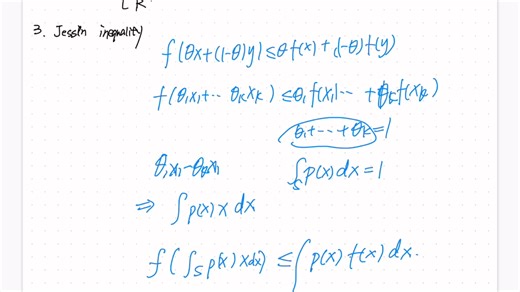 3. Jessin inequality
f(θx+(1-θ)y) ≤ θf(x)+(1-θ)f(y)
f(θ₁x₁+⋯θₖxₖ) ≤ θ₁f(x₁)⋯+θₖf(xₖ)
θ₁+⋯+θₖ=1
∫ₛ p(x) dx = 1
⇒ ∫ p(x) x dx
f(∫ₛ p(x) x dx) ≤ ∫ p(x) f(x) dx.